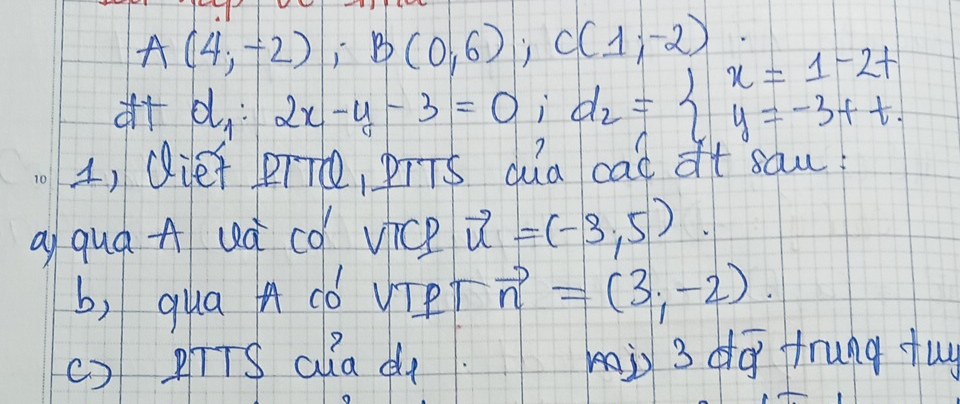 A(4;-2); B(0,6); C(1;-2).
đt d₁: 2x-y-3=0; d₂= { x = 1-2t
y = -3+t.
10 1, Viết PTTQ, PTTS của các đt sau:
a, qua A và có VTCP u⃗ =(-3,5).
b, qua A có VTPT n⃗ = (3;-2).
c) PTTS của d₁. m) 3 đg trung tuy